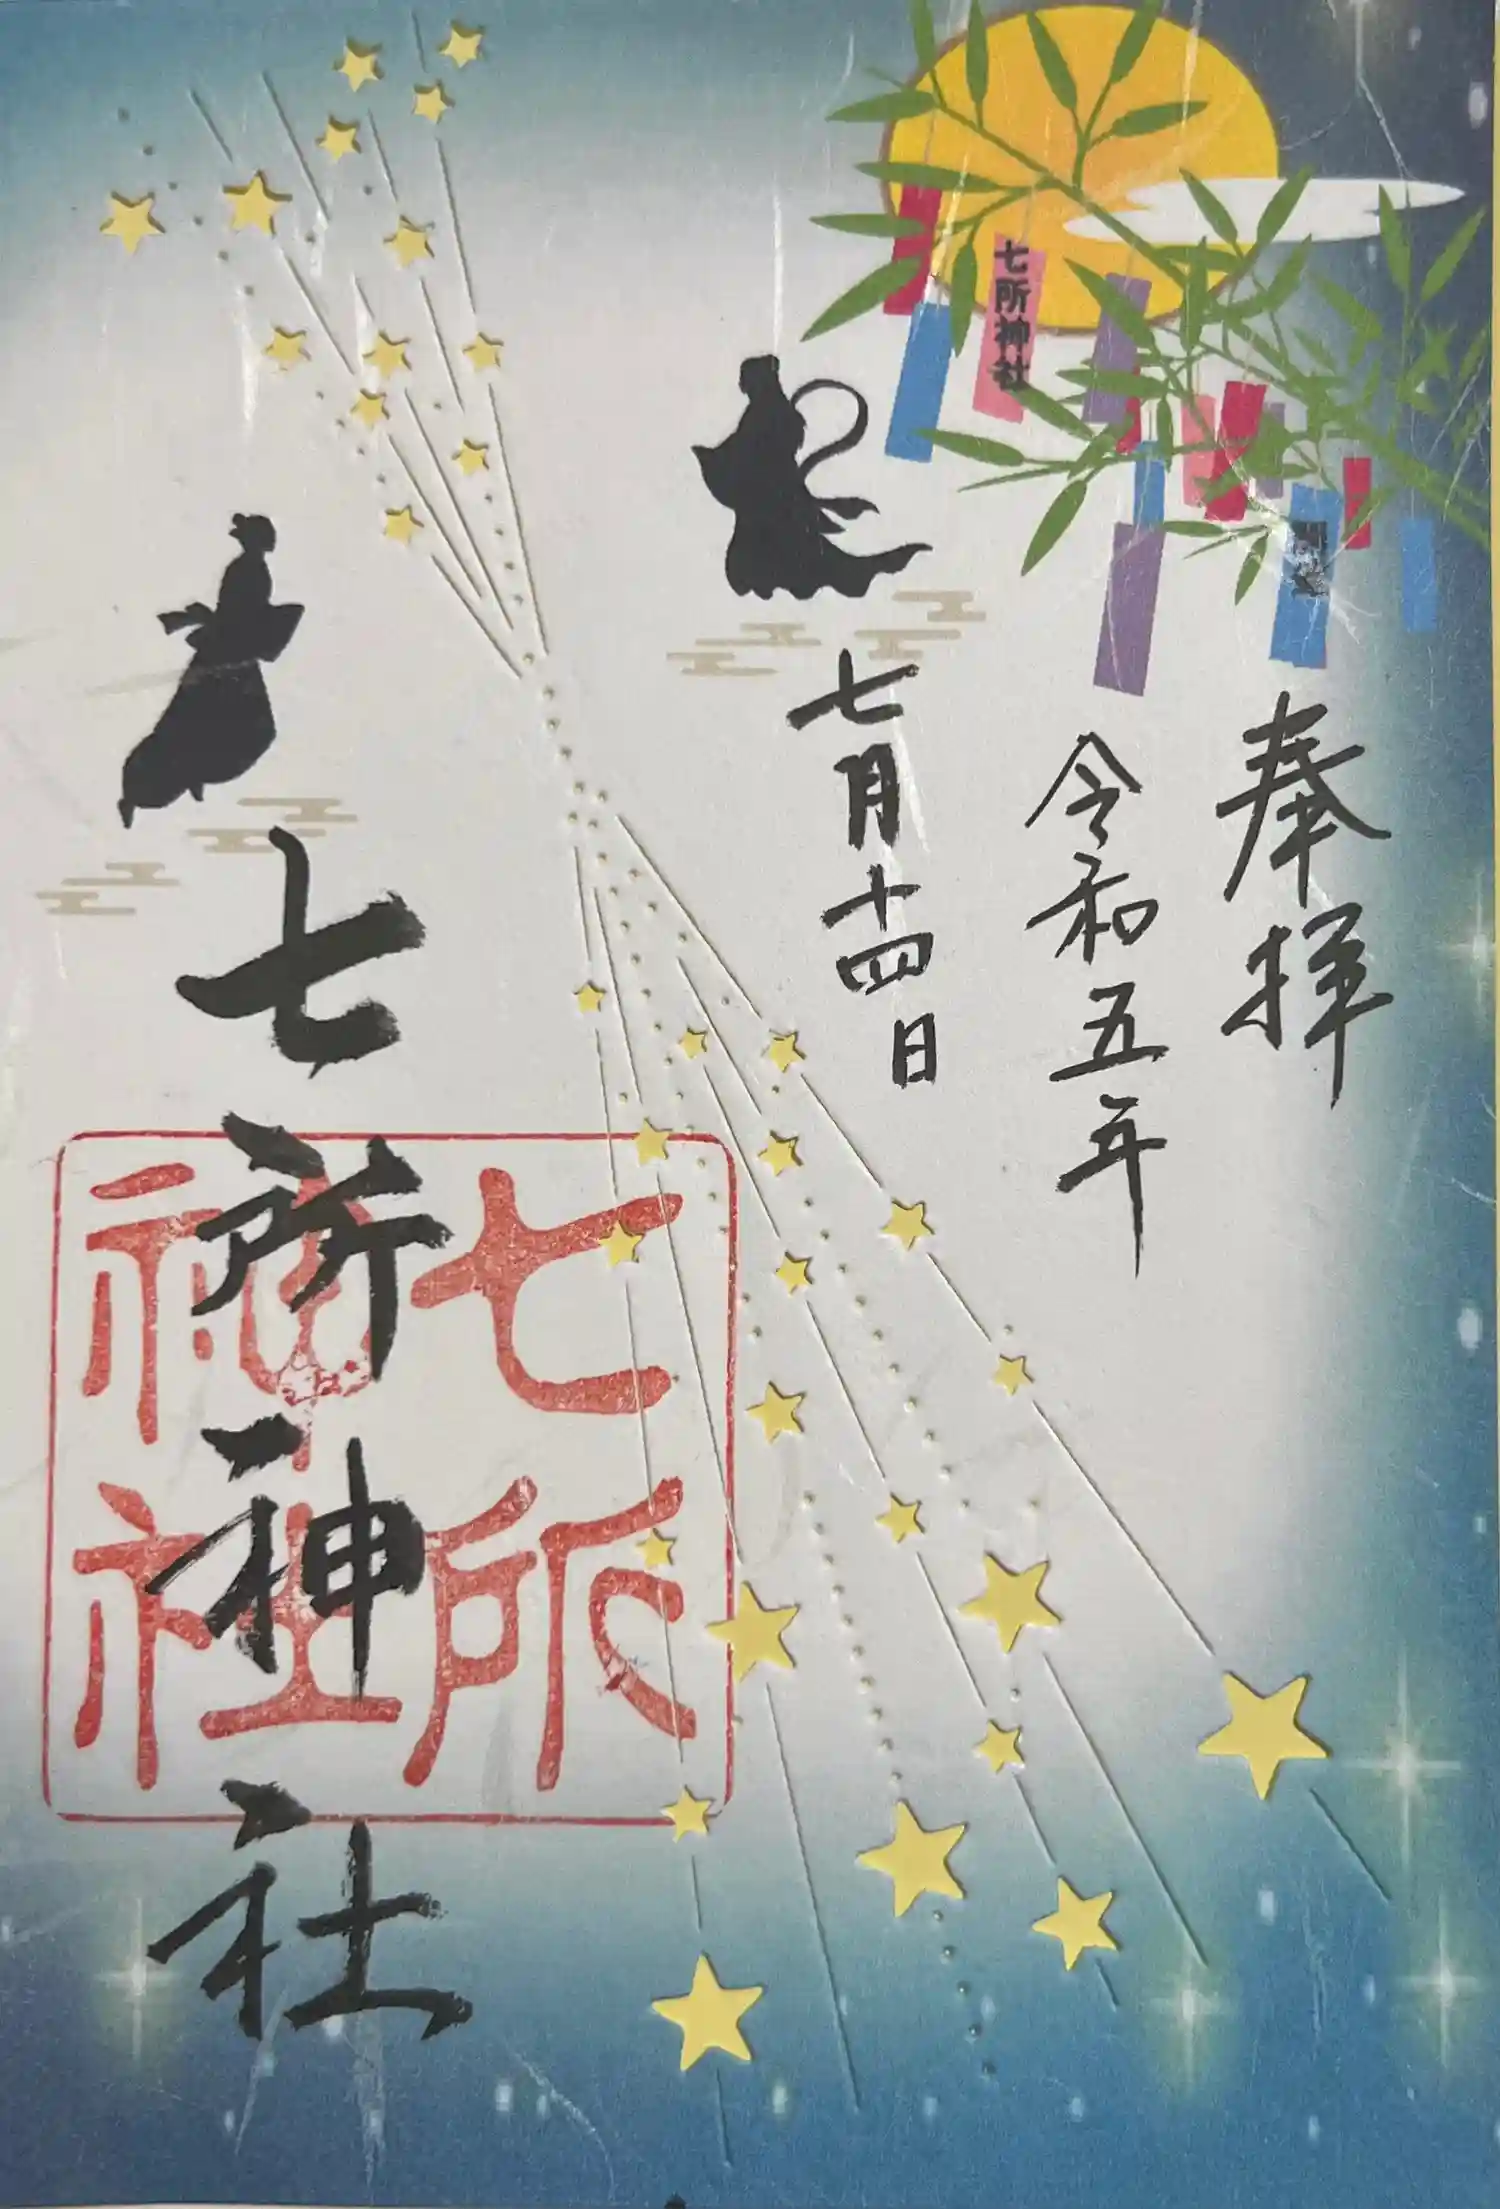 七所神社
奉拝
令和五年
七月十四日
七所神社
七所神社